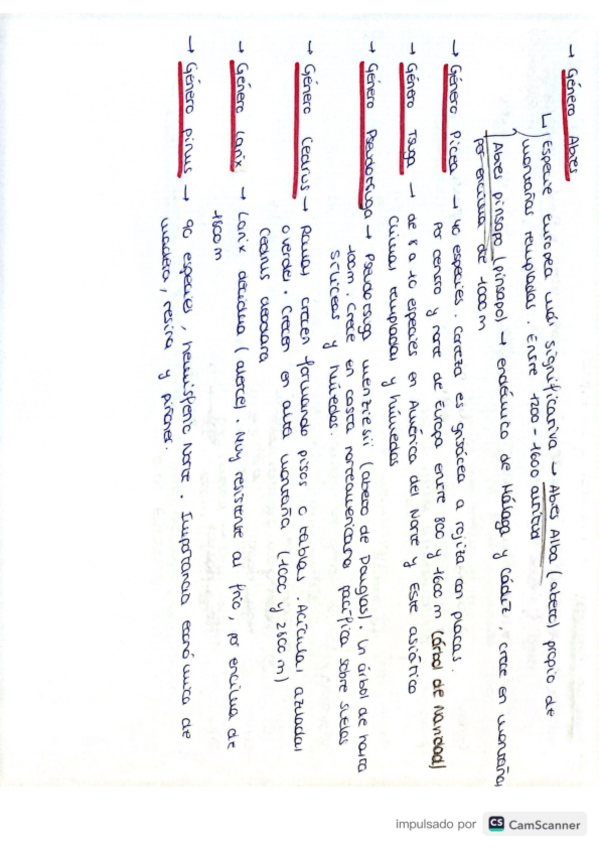 → Género Abies
↳ Especie europea más significativa → Abies Alba (abeto) propio de
montañas templadas. Entre 1200 - 1600 altitud
Abies pinsapo (pinsapo) → endémico de Málaga y Cádiz, crece en montañas
por encima de 1000 m
→ Género Picea → 40 especies. Corteza es grisácea a rojiza con placas.
Por centro y norte de Europa entre 800 y 1600 m (árbol de Navidad)
→ Género Tsuga → de 8 a 10 especies en América del Norte y Este asiático
Climas templadas y húmedas
→ Género Pseudotsuga → Pseudotsuga menziesii (abeto de Douglas). Un árbol de hasta
100m. Crece en costa norteamericana pacífica sobre suelos
silíceos y húmedos.
→ Género Cedrus → Ramas crecen formando pisos o tablas. Acículas azuladas
o verdes. Crecen en alta montaña (1000 y 2800 m)
Cedrus deodara
→ Género Larix → Larix decidua (alerce). Muy resistente al frío, por encima de
1800 m
→ Género pinus → 90 especies, hemisferio Norte. Importancia económica de
madera, resina y piñones.
impulsado por CS CamScanner